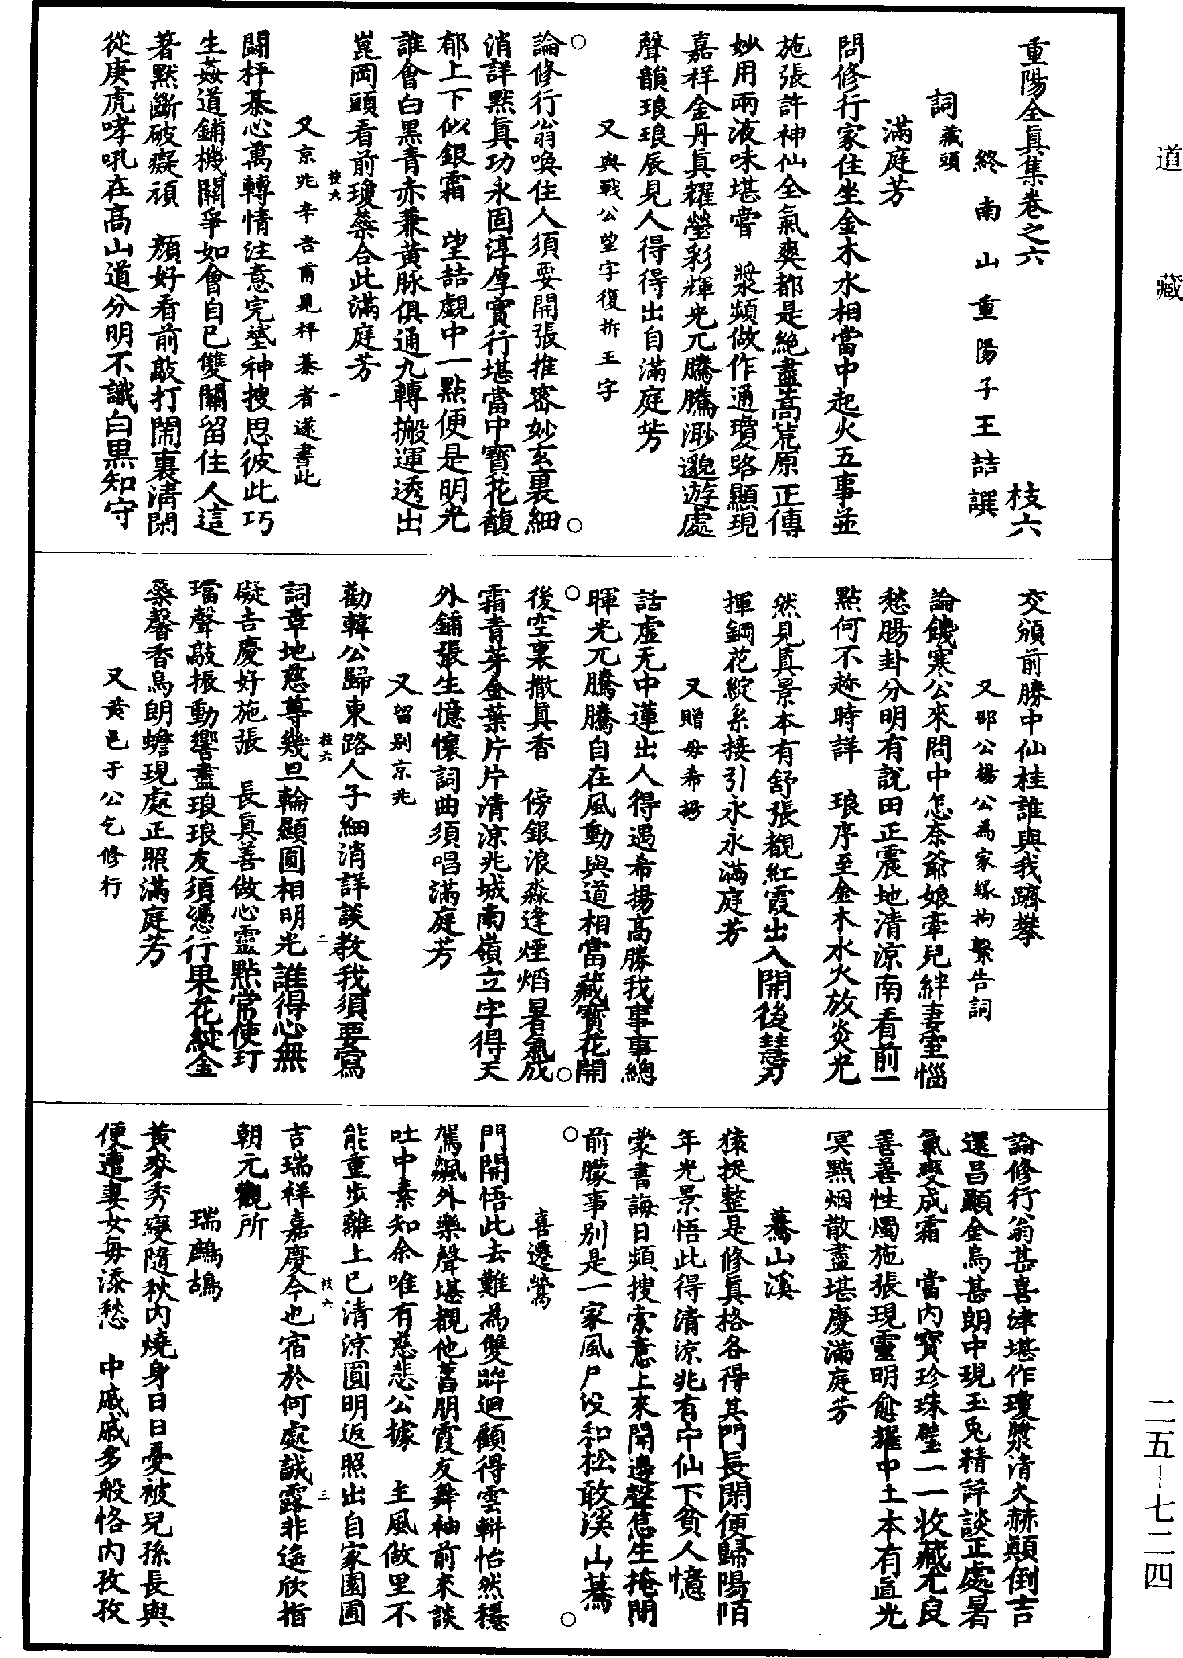 道藏
重陽全真集卷之六　枝六
終南山重陽子王嚞譔
詞藏頭
滿庭芳
問修行家住坐金木水相當中起火五事並
施張許神仙全氣爽都是絕盡蒿荒原正傳
妙用兩液味堪嘗　漿頻做作通瓊路顯現
嘉祥金丹真耀瑩彩輝光兀騰騰渺邈遊處
聲韻琅琅辰見人得得出自滿庭芳
又與戰公望字復拆王字
論修行翁喚住人須要開張推窮妙玄裏細
消詳默真功永固淳厚實行堪當中寶花馥
郁上下似銀霜　望喆覷中一點便是明光
誰會白黑青赤兼黃脉俱通九轉搬運透出
崑岡頭看前瓊蘂合此滿庭芳
枝六　一
又京兆辛吉甫見枰棊者遂書此
鬪枰棊心萬轉情注意完螯神搜思彼此巧
生姦道鋪機關爭如會自已雙關留住人這
著黙斷破癡頑　顏好看前敲打鬧裏清閑
從庚虎哮吼在高山道分明不識白黒知守
交頒前勝中仙桂誰與我躋攀
又邵公楊公為家緣拘繫告詞
論饑寒公來問中怎奈爺娘牽兒絆妻室惱
愁腸卦分明有說田正震地清涼南看前一
點何不趂時詳　琅序至金木水火放炎光
然見真景本有舒張覩紅霞出入開後慧刀
揮鋼花綻系接引永永滿庭芳
又贈毋希揚
話虛无中蓮出人得遇希揚高勝我事事總
暉光兀騰騰自在風動與道相當藏寶花開
後空裏撒真香　傍銀浪淼逢煙熖暑氣成
霜青芽金葉片片清涼兆城南嶺立字得天
外鋪張生憶懷詞曲須唱滿庭芳
又留別京兆
勸韓公歸東路人子細消詳談教我須要寫
枝六　二
詞章地慈尊幾旦輪顯圓相明光誰得心無
礙吉慶好施張　長真善做心靈點常使玎
璫聲敲振動響盡琅琅友須憑行果花綻金
蘂馨香烏朗蟾現處正照滿庭芳
又黃邑于公乞修行
論修行翁甚喜津堪作瓊漿清火赫顛倒吉
還昌顯金烏甚朗中現玉兎精詳談正處暑
氣變成霜　當內寶珍珠璧一一收藏尤良
善善性燭施張現靈明愈耀中土本有真光
㝠點烟散盡堪慶滿庭芳
驀山溪
猿捉整是修真格各得其門長閑便歸陽陌
年光景悟此得清涼兆有中仙下貧人憶
蒙書誨日頻搜索意上來開邊聲息生掩閉
前朦事別是一家風尸没和松敢溪山驀
喜遷鶯
門開悟此去難為雙眸迴顧得雲軿怡然穩
駕飊外樂聲堪觀他舊朋霞友舞袖前來談
吐中素知余唯有慈悲公據　主風做里不
能重步離上已清涼圓明返照出自家園圃
枝六　三
吉瑞祥嘉慶今也宿於何處誠露非遙欣指
朝元觀所
瑞鷓鴣
黃麥秀變隨秋內燒身日日憂被兒孫長與
便遭妻女每添愁　中戚戚多般恪內孜孜
二五－七二四